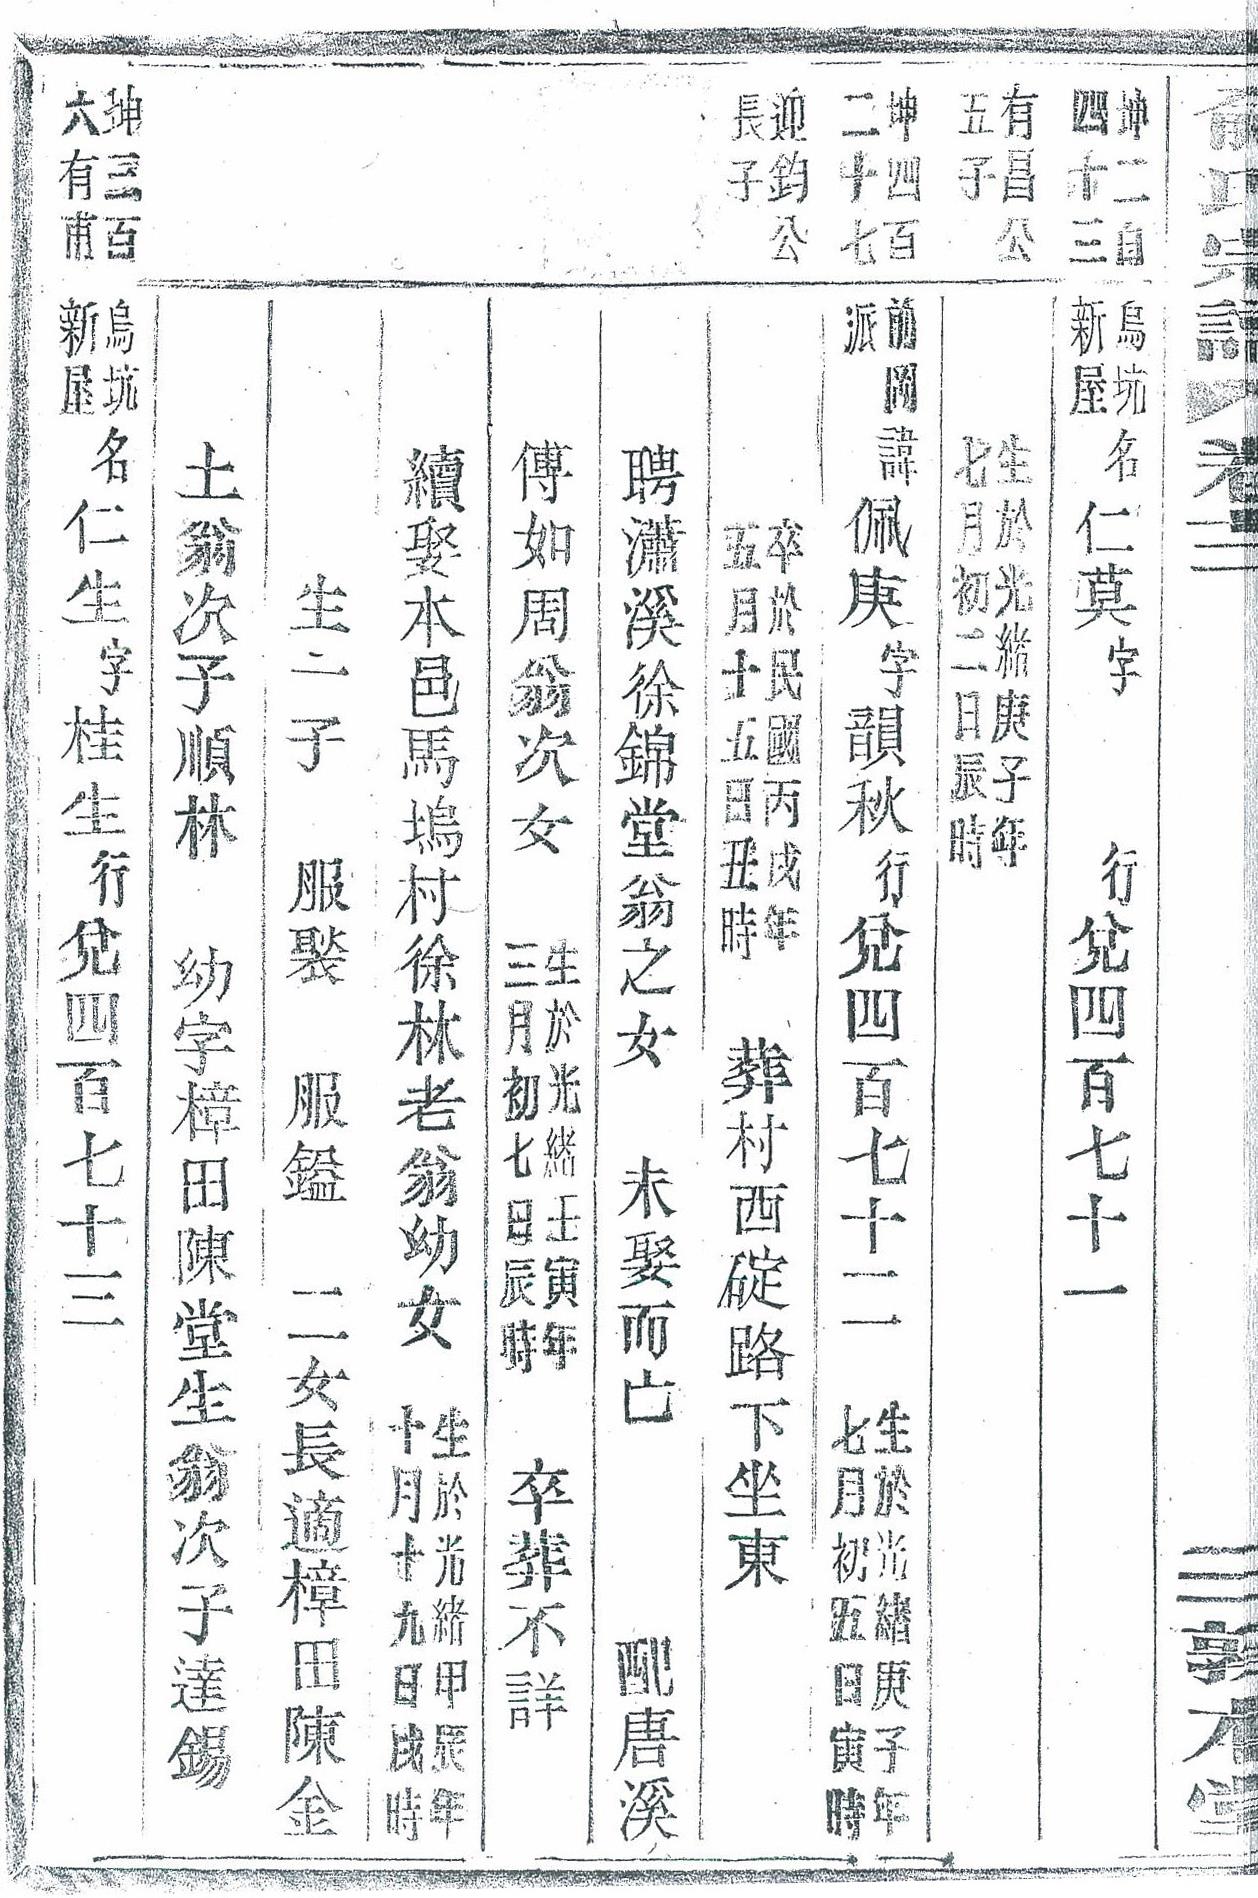 俞氏宗譜 卷二 三 敦本堂
坤二百四十三 烏坑新屋 名仁蓂字 行兌四百七十一
有昌公五子 生於光緒庚子年七月初二日辰時
坤四百二十七 前岡派 諱佩庚字韻秋行兌四百七十二 生於光緒庚子年七月初五日寅時
迎鈞公長子 卒於民國丙戌年五月十五日丑時 葬村西碇路下坐東
聘瀟溪徐錦堂翁之女 未娶而亡 配唐溪
傅如周翁次女 生於光緒壬寅年三月初七日辰時 卒葬不詳
續娶本邑馬塢村徐林老翁幼女 生於光緒甲辰年十月十九日戌時
生二子 服褧 服鎰 二女長適樟田陳金
土翁次子順林 幼字樟田陳堂生翁次子達錫
坤三百六有甫 烏坑新屋 名仁生字桂生行兌四百七十三